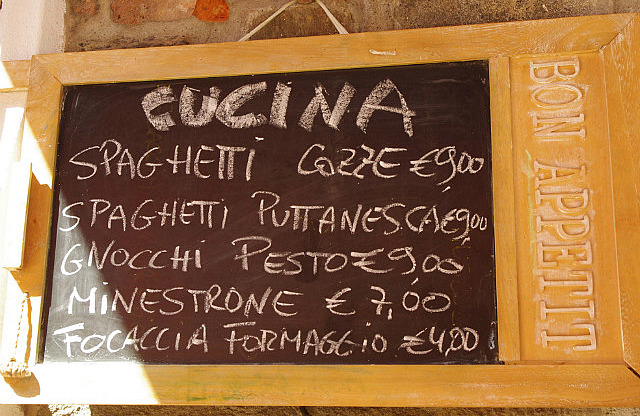 CUCINA
SPAGHETTI COZZE €9,00
SPAGHETTI PUTTANESCA €9,00
GNOCCHI PESTO €9,00
MINESTRONE € 7,00
FOCACCIA FORMAGGIO €4,00
BON APPETIT